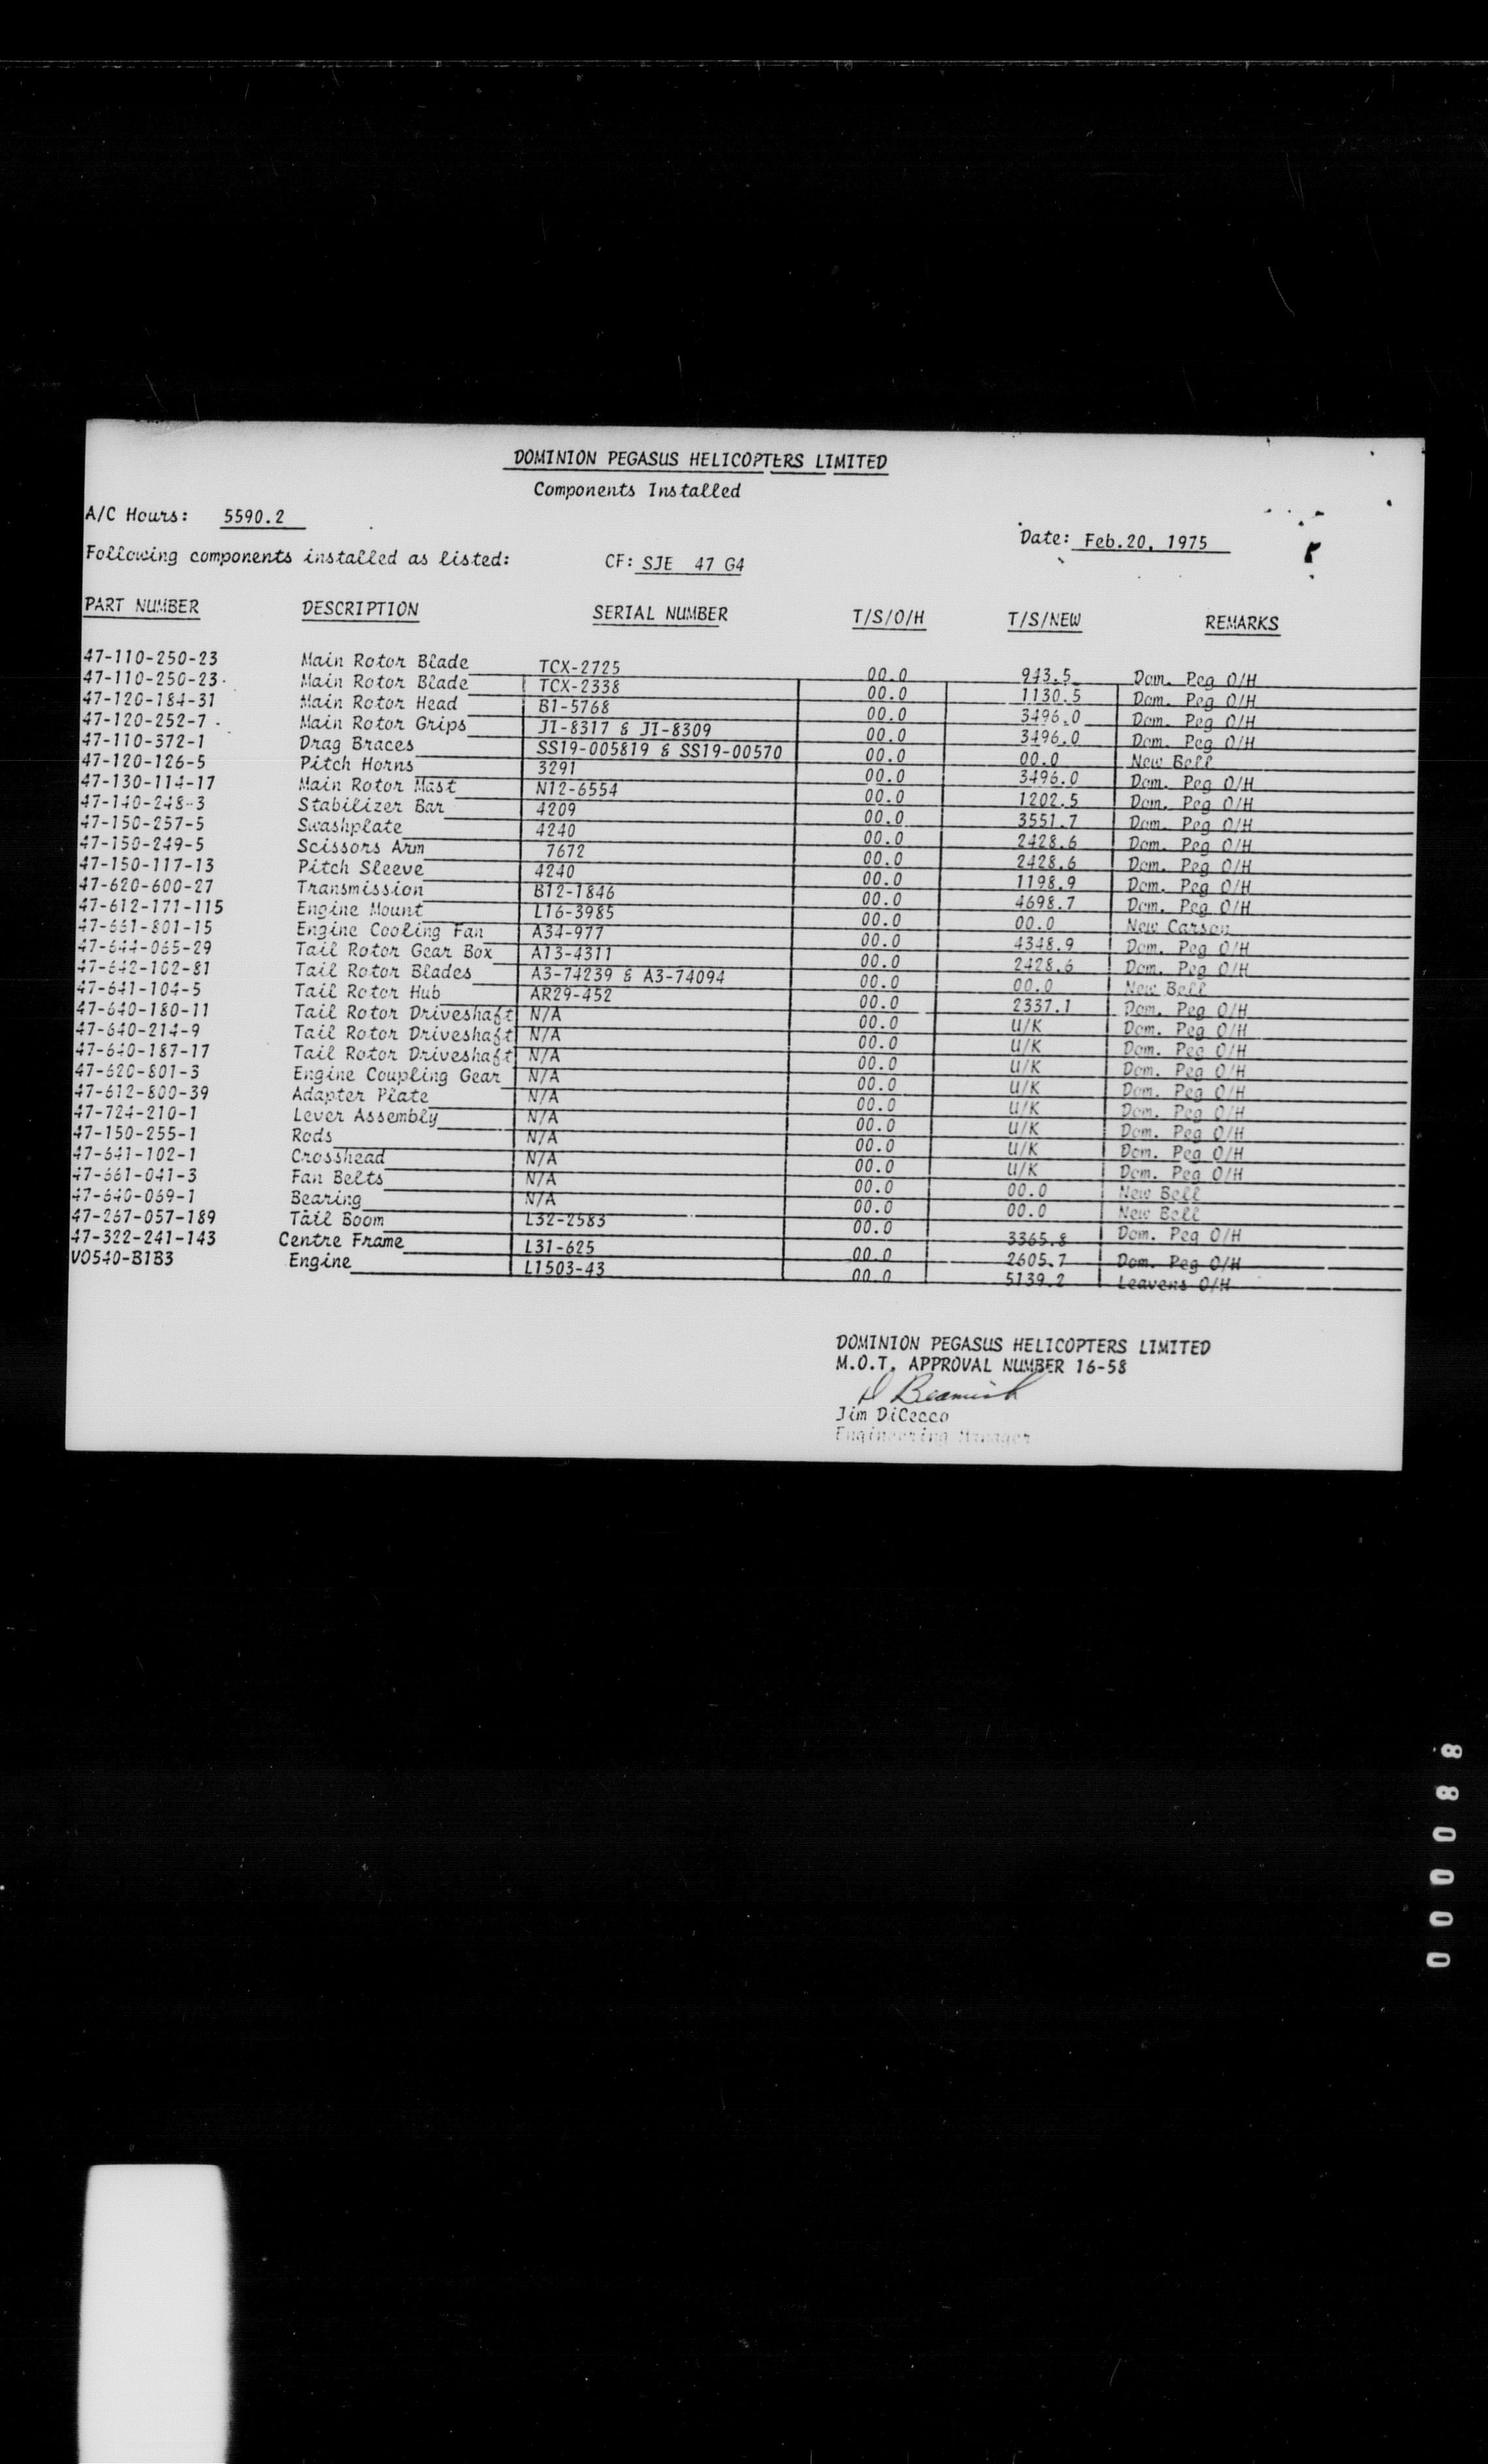 DOMINION PEGASUS HELICOPTERS LIMITED
Components Installed
A/C Hours: 5590.2
Date: Feb.20, 1975
Following components installed as listed: CF: SJE 47 G4
PART NUMBER DESCRIPTION SERIAL NUMBER T/S/O/H T/S/NEW REMARKS
47-110-250-23 Main Rotor Blade TCX-2725 00.0 943.5 Dom. Peg O/H
47-110-250-23 Main Rotor Blade TCX-2338 00.0 1130.5 Dom. Peg O/H
47-120-184-31 Main Rotor Head B1-5768 00.0 3496.0 Dom. Peg O/H
47-120-252-7 Main Rotor Grips JI-8317 & JI-8309 00.0 3496.0 Dom. Peg O/H
47-110-372-1 Drag Braces SS19-005819 & SS19-00570 00.0 00.0 New Bell
47-120-126-5 Pitch Horns 3291 00.0 3496.0 Dom. Peg O/H
47-130-114-17 Main Rotor Mast N12-6554 00.0 1202.5 Dom. Peg O/H
47-140-248-3 Stabilizer Bar 4209 00.0 3551.7 Dom. Peg O/H
47-150-257-5 Swashplate 4240 00.0 2428.6 Dom. Peg O/H
47-150-249-5 Scissors Arm 7672 00.0 2428.6 Dom. Peg O/H
47-150-117-13 Pitch Sleeve 4240 00.0 1198.9 Dom. Peg O/H
47-620-600-27 Transmission B12-1846 00.0 4698.7 Dom. Peg O/H
47-612-171-115 Engine Mount L16-3985 00.0 00.0 New Carson
47-661-801-15 Engine Cooling Fan A34-977 00.0 4348.9 Dom. Peg O/H
47-644-065-29 Tail Rotor Gear Box A13-4311 00.0 2428.6 Dom. Peg O/H
47-642-102-81 Tail Rotor Blades A3-74239 & A3-74094 00.0 00.0 New Bell
47-641-104-5 Tail Rotor Hub AR29-452 00.0 2337.1 Dom. Peg O/H
47-640-180-11 Tail Rotor Driveshaft N/A 00.0 U/K Dom. Peg O/H
47-640-214-9 Tail Rotor Driveshaft N/A 00.0 U/K Dom. Peg O/H
47-640-187-17 Tail Rotor Driveshaft N/A 00.0 U/K Dom. Peg O/H
47-620-801-3 Engine Coupling Gear N/A 00.0 U/K Dom. Peg O/H
47-612-800-39 Adapter Plate N/A 00.0 U/K Dom. Peg O/H
47-724-210-1 Lever Assembly N/A 00.0 U/K Dom. Peg O/H
47-150-255-1 Rods N/A 00.0 U/K Dom. Peg O/H
47-641-102-1 Crosshead N/A 00.0 U/K Dom. Peg O/H
47-661-041-3 Fan Belts N/A 00.0 00.0 New Bell
47-640-069-1 Bearing N/A 00.0 00.0 New Bell
47-267-057-189 Tail Boom L32-2583 00.0 3365.8 Dom. Peg O/H
47-322-241-143 Centre Frame L31-625 00.0 2605.7 Dom. Peg O/H
VO540-B1B3 Engine L1503-43 00.0 5139.2 Leavens O/H
DOMINION PEGASUS HELICOPTERS LIMITED
M.O.T. APPROVAL NUMBER 16-58
D Beamish
Jim DiCecco
Engineering Manager
000088